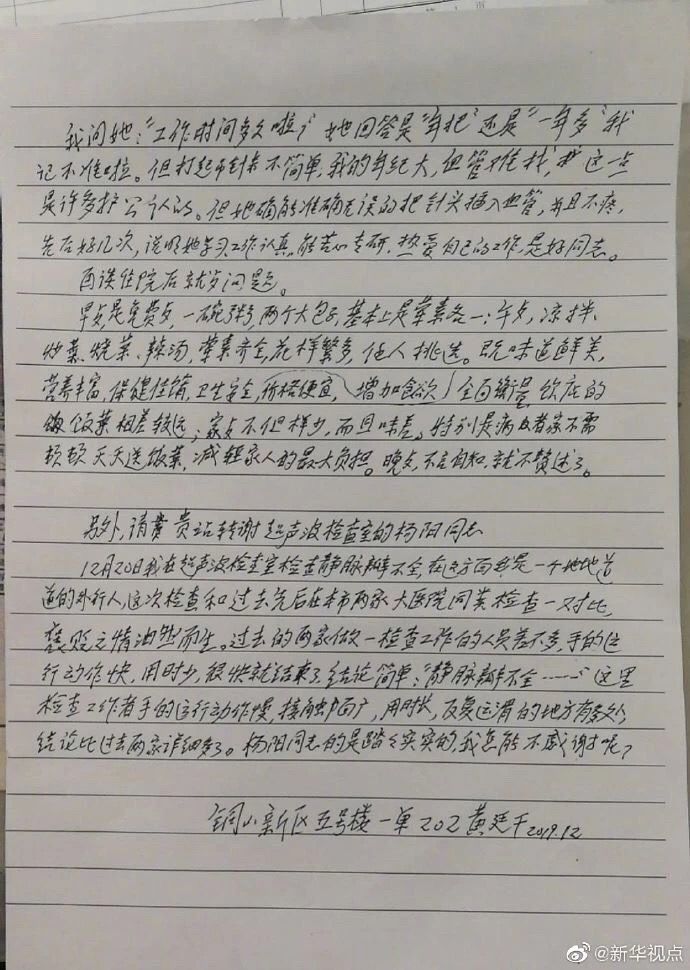 我问她："工作时间多久啦？"她回答是"年把"还是"一年多"我
记不准啦。但打起针来不简单,我的年纪大,血管难找,这一点
是许多护公认的。但她确能准确无误的把针头插入血管,并且不疼,
先后好几次,说明她学习工作认真,能苦心专研,热爱自己的工作是好同志。
再谈住院后就歺问题。
早歺是免费歺,一碗粥,两个大包子,基本上是荤素各一;午歺,凉拌、
炒菜、烧菜、辣汤,荤素齐全,花样繁多,任人挑选。既味道鲜美,
营养丰富,保健佳销,卫生安全,价格便宜,增加食欲,全面衡量,饮店的
饭菜相差较远;家歺不但样少,而且味差。特别是病者家不需
顿顿天天送饭菜,减轻家人的最大负担。晚歺,不言自知,就不赘述了。
另外,请贵站转谢超声波检查室的杨阳同志
12月20日我在超声波检查室检查静脉瓣不全,在这方面我是一个地地道
道的外行人,这次检查和过去先后在本市两家大医院同类检查一对比,
褒贬之情油然而生。过去的两家做一检查工作的人员差不多,手的运
行动作快,用时少,很快就结束了,结论简单:"静脉瓣不全……"这里
检查工作者手的运行动作慢,接触面广,用时长,反复运滑的地方有多处,
结论比过去两家详细多了。杨阳同志的是踏踏实实的,我怎能不感谢呢?
铜山新区五号楼一单202黄廷干2019.12
@新华视点